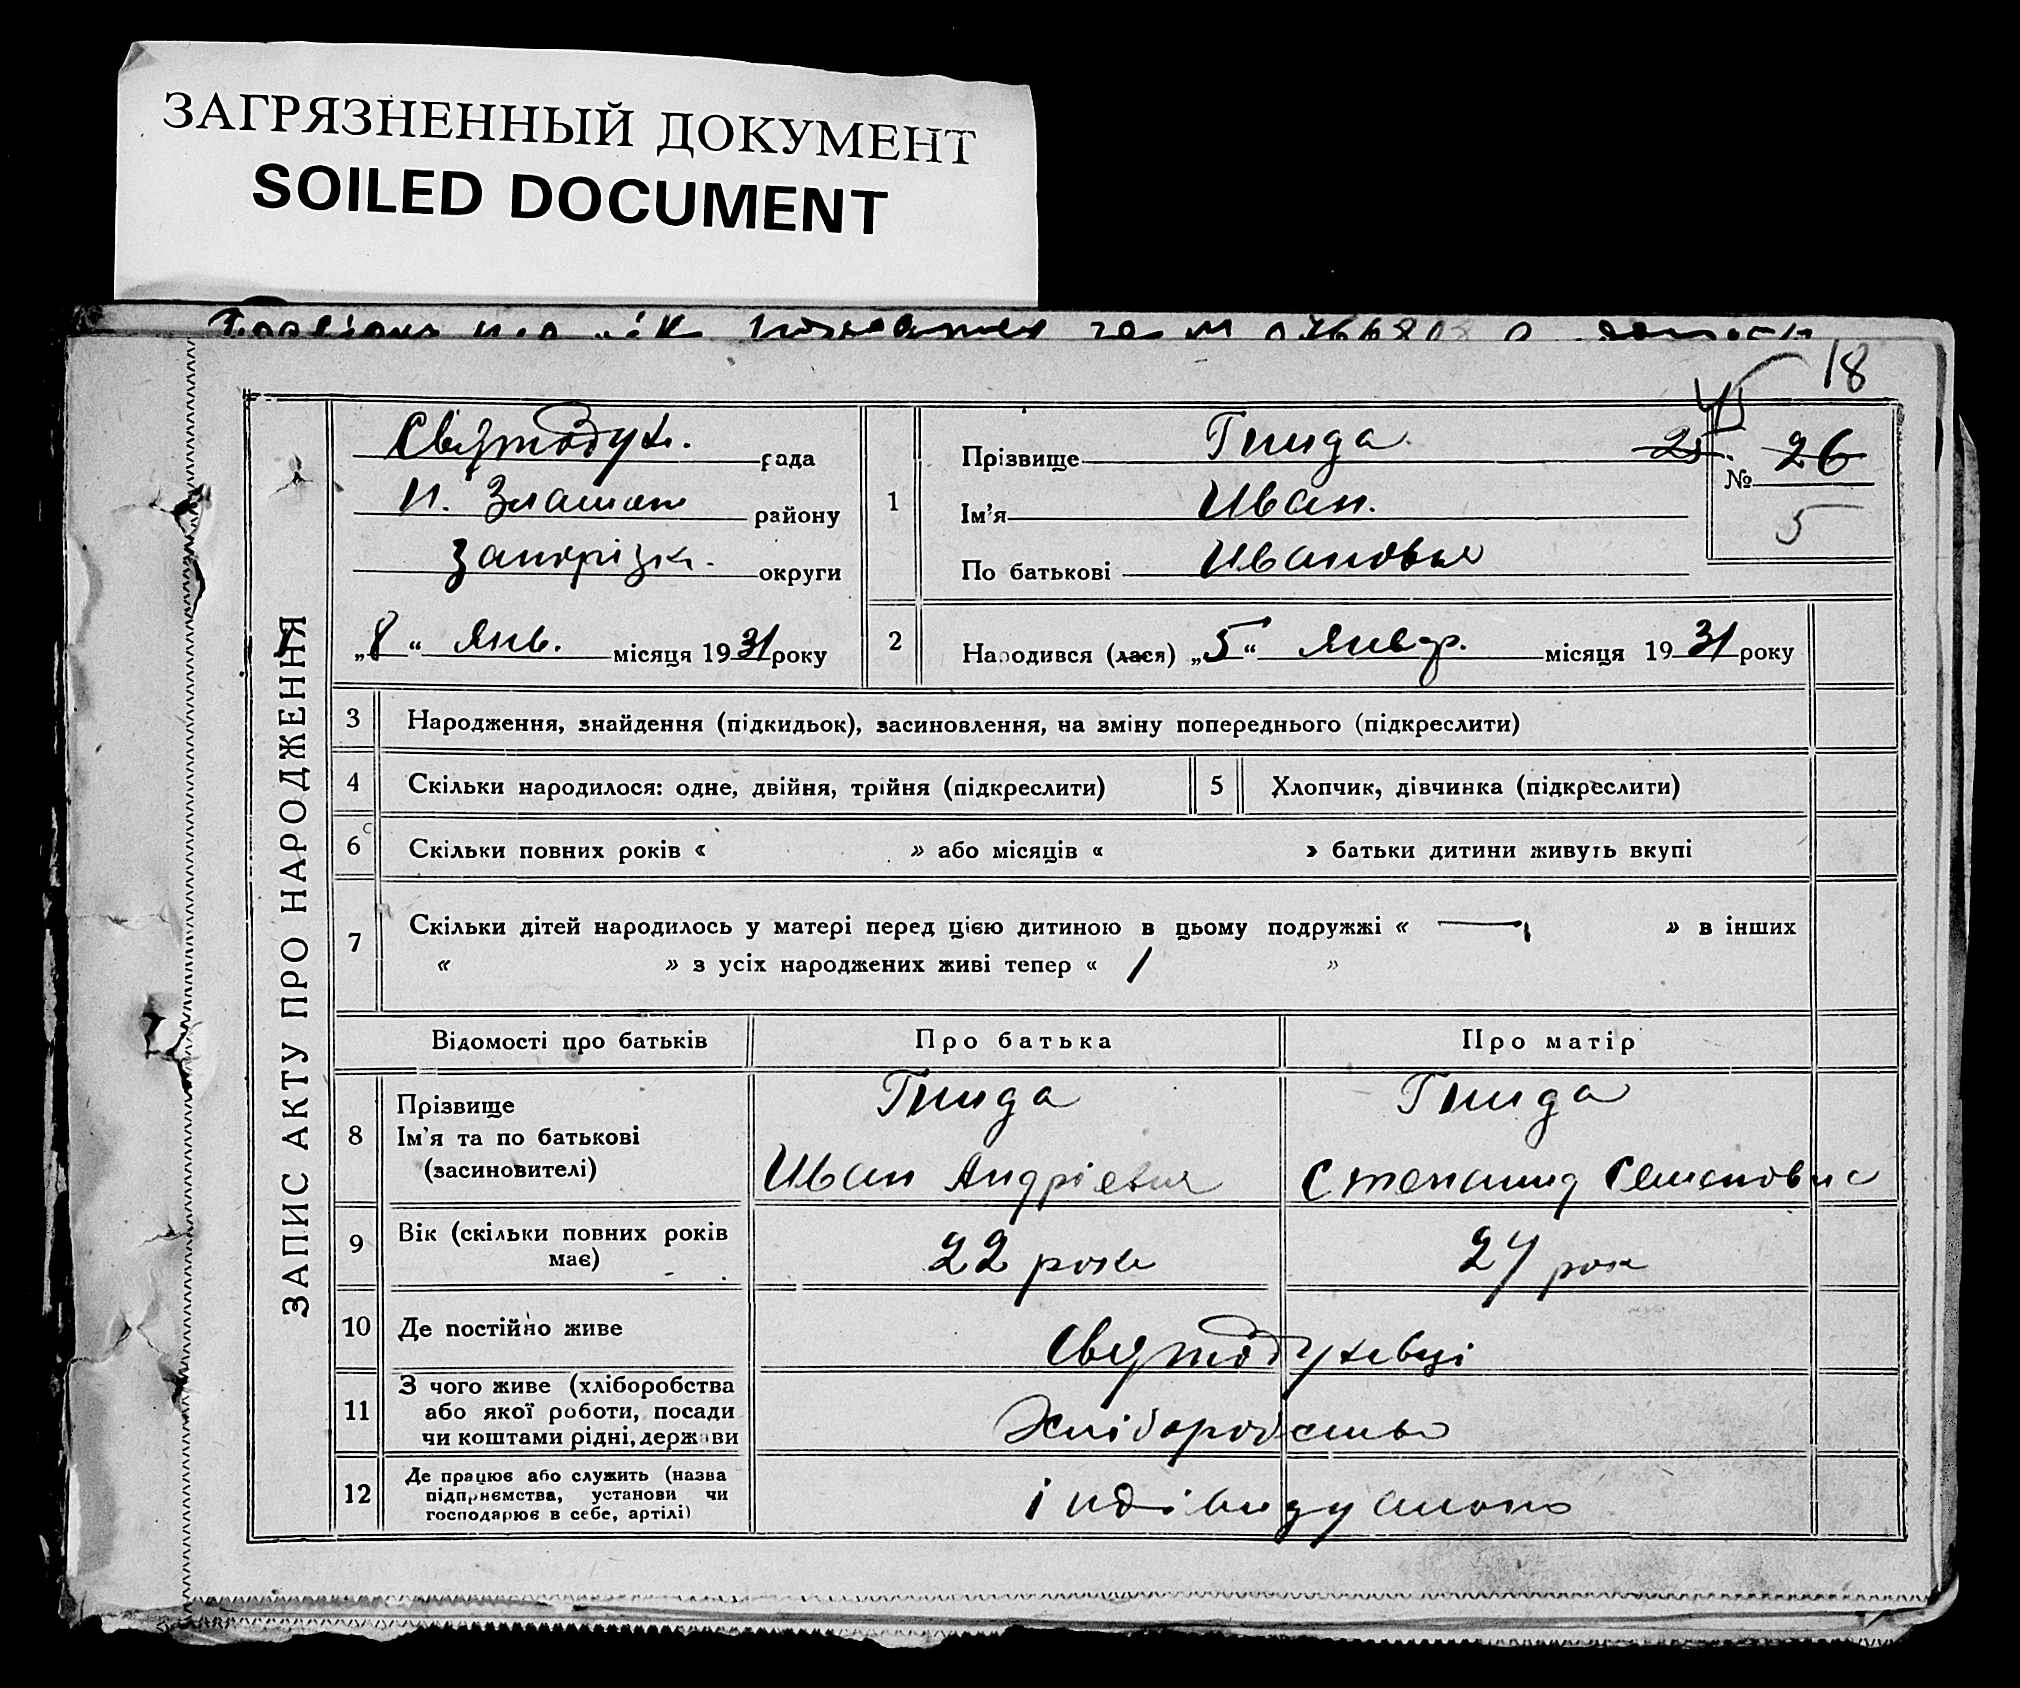 ЗАГРЯЗНЕННЫЙ ДОКУМЕНТ
SOILED DOCUMENT
18
45
ЗАПИС АКТУ ПРО НАРОДЖЕННЯ
Святодух. рада
Н. Златоп районy
Запорізьк. округи
„8“ Янв. місяця 1931 року
1
Прізвище Гнида
Ім'я Иван.
По батькові Ивановыч
25. № 26
5
2
Народився (лася) „5“ Январ. місяця 1931 року
3 Народження, знайдення (підкидьок), засиновлення, на зміну попереднього (підкреслити)
4 Скільки народилося: одне, двійня, трійня (підкреслити)
5 Хлопчик, дівчинка (підкреслити)
6 Скільки повних років « » або місяців « » батьки дитини живуть вкупі
7 Скільки дітей народилось у матері перед цією дитиною в цьому подружжі « — » в інших
« » з усіх народжених живі тепер « 1 »
Відомості про батьків Про батька Про матір
8 Прізвище Гнида Гнида
Ім'я та по батькові Иван Андріевич Степанида Семеновна
(засиновителі)
9 Вік (скільки повних років має) 22 роки 27 рок
10 Де постійно живе Святодухівці
11 З чого живе (хліборобства
або якої роботи, посади
чи коштами рідні, держави
Хліборобство
12 Де працює або служить (назва
підприємства, установи чи
господарює в себе, артілі)
індівидуально